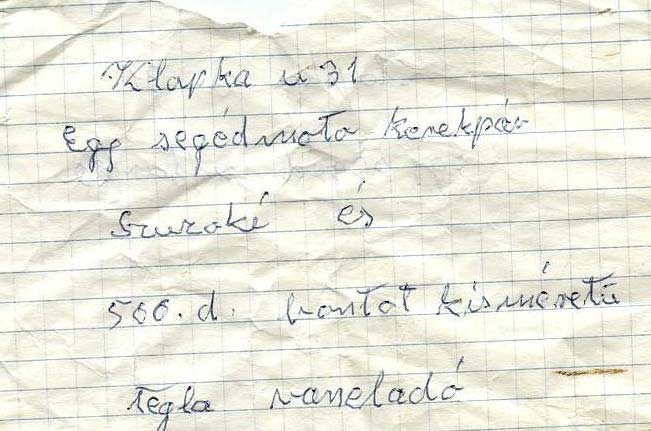 Klapka u 31
Egg segédmoto kerekpár
Szuzoki és
500. d. bontot kisméretű
Tegla vaneladó